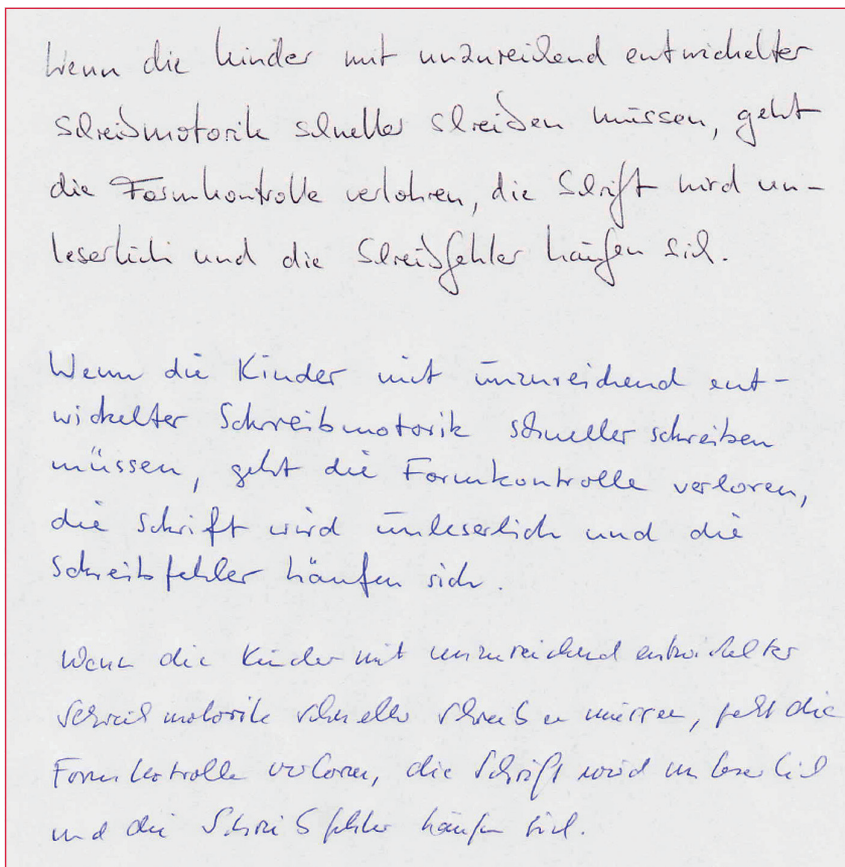 Wenn die Kinder mit unzureichend entwickelter
Schreibmotorik schneller schreiben müssen, geht
die Formkontrolle verlohren, die Schrift wird un-
leserlich und die Schreibfehler häufen sich.
Wenn die Kinder mit unzureichend ent-
wickelter Schreibmotorik schneller schreiben
müssen, geht die Formkontrolle verloren,
die Schrift wird unleserlich und die
Schreibfehler häufen sich.
Wenn die Kinder mit unzureichend entwickelter
Schreibmotorik schneller schreiben müssen, geht die
Formkotrolle verloren, die Schrift wird unleserlich
und die Schreibfehler häufen sich.